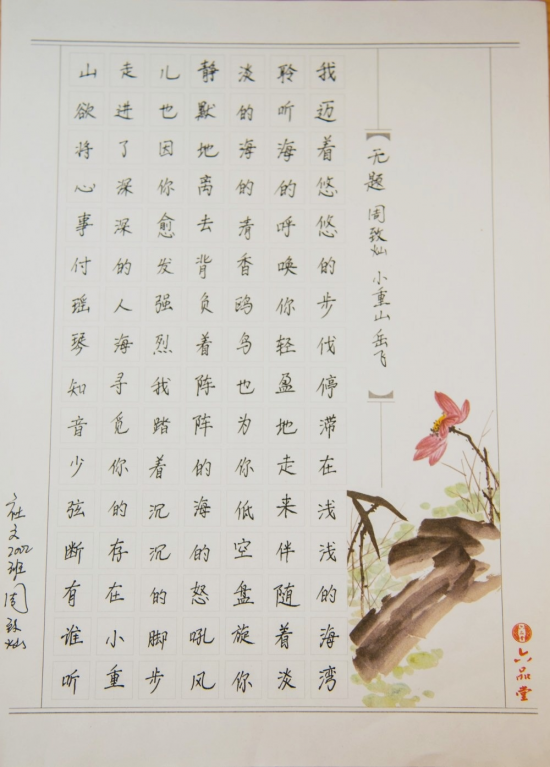 【无题 周致灿 小重山 岳飞】
我迈着悠悠的步伐停滞在浅浅的海湾
聆听海的呼唤你轻盈地走来伴随着淡
淡的海的清香鸥鸟也为你低空盘旋你
静默地离去背负着阵阵的海的怒吼风
儿也因你愈发强烈我踏着沉沉的脚步
走进了深深的人海寻觅你的存在小重
山欲将心事付瑶琴知音少弦断有谁听
社文2002班周致灿
六品堂